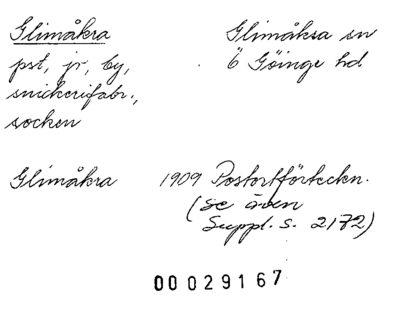 Glimåkra
pst, jr, by,
snickerifabr.,
socken
Glimåkra sn
Ö Göinge hd
Glimåkra 1909 Postortförteckn.
(se även
Suppl. s. 2172)
00029167